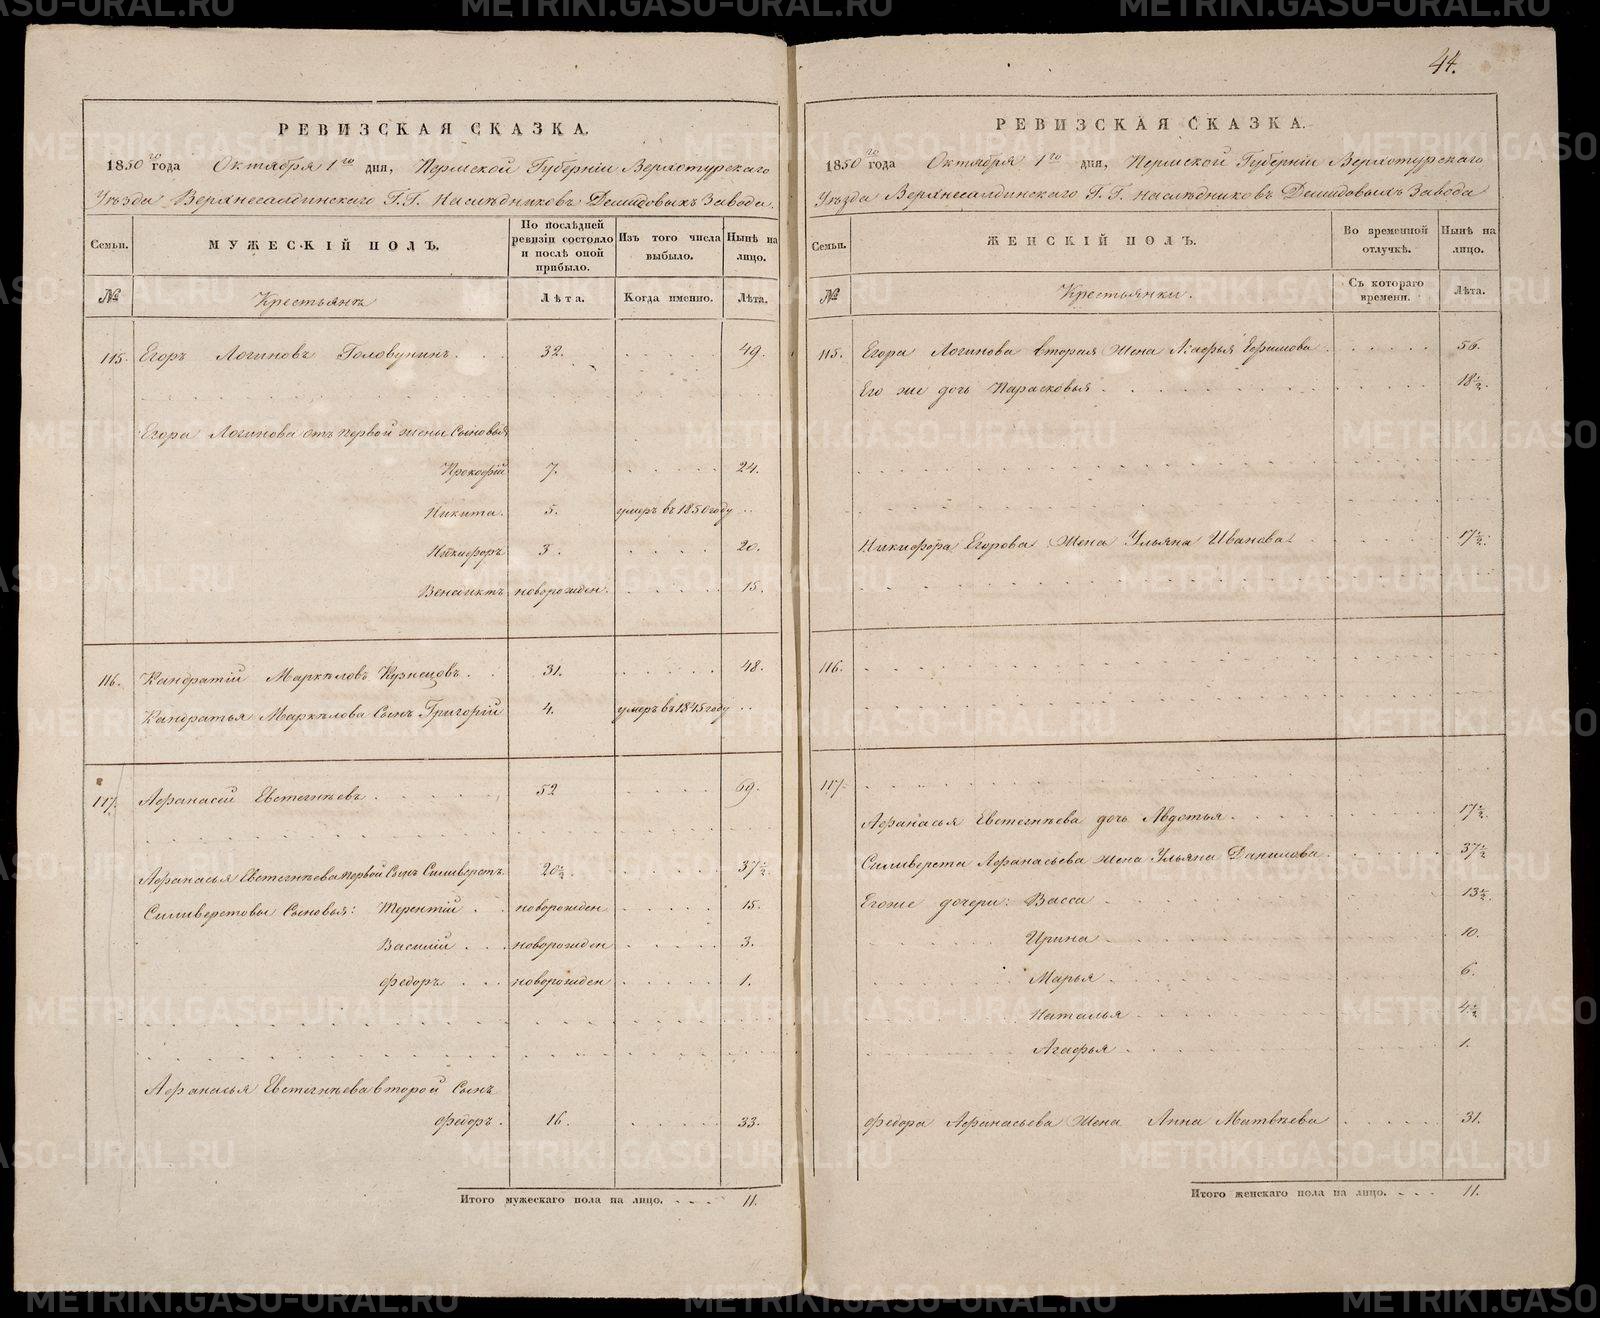 44.
РЕВИЗСКАЯ СКАЗКА.
1850го года Октября 1го дня, Пермской Губернiи Верхотурскаго
Уѣзда Верхнесалдинскаго Г.Г. Наслѣдниковъ Демидовыхъ Завода.
Семьи.
МУЖЕСКIЙ ПОЛЪ.
По послѣдней ревизiи состояло и послѣ оной прибыло.
Изъ того числа выбыло.
Нынѣ на лицо.
№
Крестьянъ
Лѣта.
Когда именно.
Лѣта.
115. Егоръ Логиновъ Головунинъ. 32. 49.
Егора Логинова отъ первой жены Сыновья
Прокофiй 7. 24.
Никита. 5. умеръ въ 1850 году
Никифоръ 3. 20.
Венедиктъ новорожден. 15.
116. Кандратiй Маркѣловъ Кузнецовъ. 31. 48.
Кандратья Маркѣлова Сынъ Григорiй 4. умеръ въ 1845 году
117. Афанасей Евстегнѣевъ. 52 69.
Афанасья Евстегнѣева первой Сынъ Силиверстъ 20½ 37½.
Силиверстовы Сыновья: Терентiй новорожден 15.
Василiй новорожден 3.
Федоръ новорожден 1.
Афанасья Евстегнѣева второй Сынъ
Федоръ. 16. 33.
Итого мужескаго пола на лицо. 11.
РЕВИЗСКАЯ СКАЗКА.
1850го года Октября 1го дня, Пермской Губернiи Верхотурскаго
Уѣзда Верхнесалдинскаго Г.Г. Наслѣдниковъ Демидовыхъ Завода
Семьи.
ЖЕНСКIЙ ПОЛЪ.
Во временной отлучкѣ.
Нынѣ на лицо.
№
Крестьянки.
Съ котораго времени.
Лѣта.
115. Егора Логинова вторая Жена Агафья Ефимова 56.
Его же дочь Парасковья 18½.
Никифора Егорова Жена Ульяна Иванова 17½.
116.
117.
Афанасья Евстегнѣева дочь Авдотья 17½.
Силиверста Афанасьева жена Ульяна Данилова 37½
Егоже дочери: Васса 13½.
Ирина 10.
Марья 6.
Наталья 4½
Агафья 1.
Федора Афанасьева Жена Анна Матвѣева 31.
Итого женскаго пола на лицо. 11.
METRIKI.GASO-URAL.RU